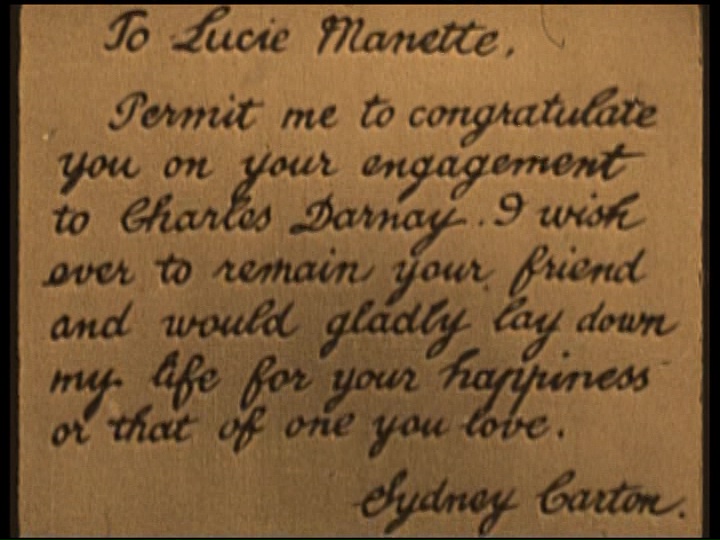 To Lucie Manette.
Permit me to congratulate
you on your engagement
to Charles Darnay. I wish
ever to remain your friend
and would gladly lay down
my life for your happiness
or that of one you love.
Sydney Carton.